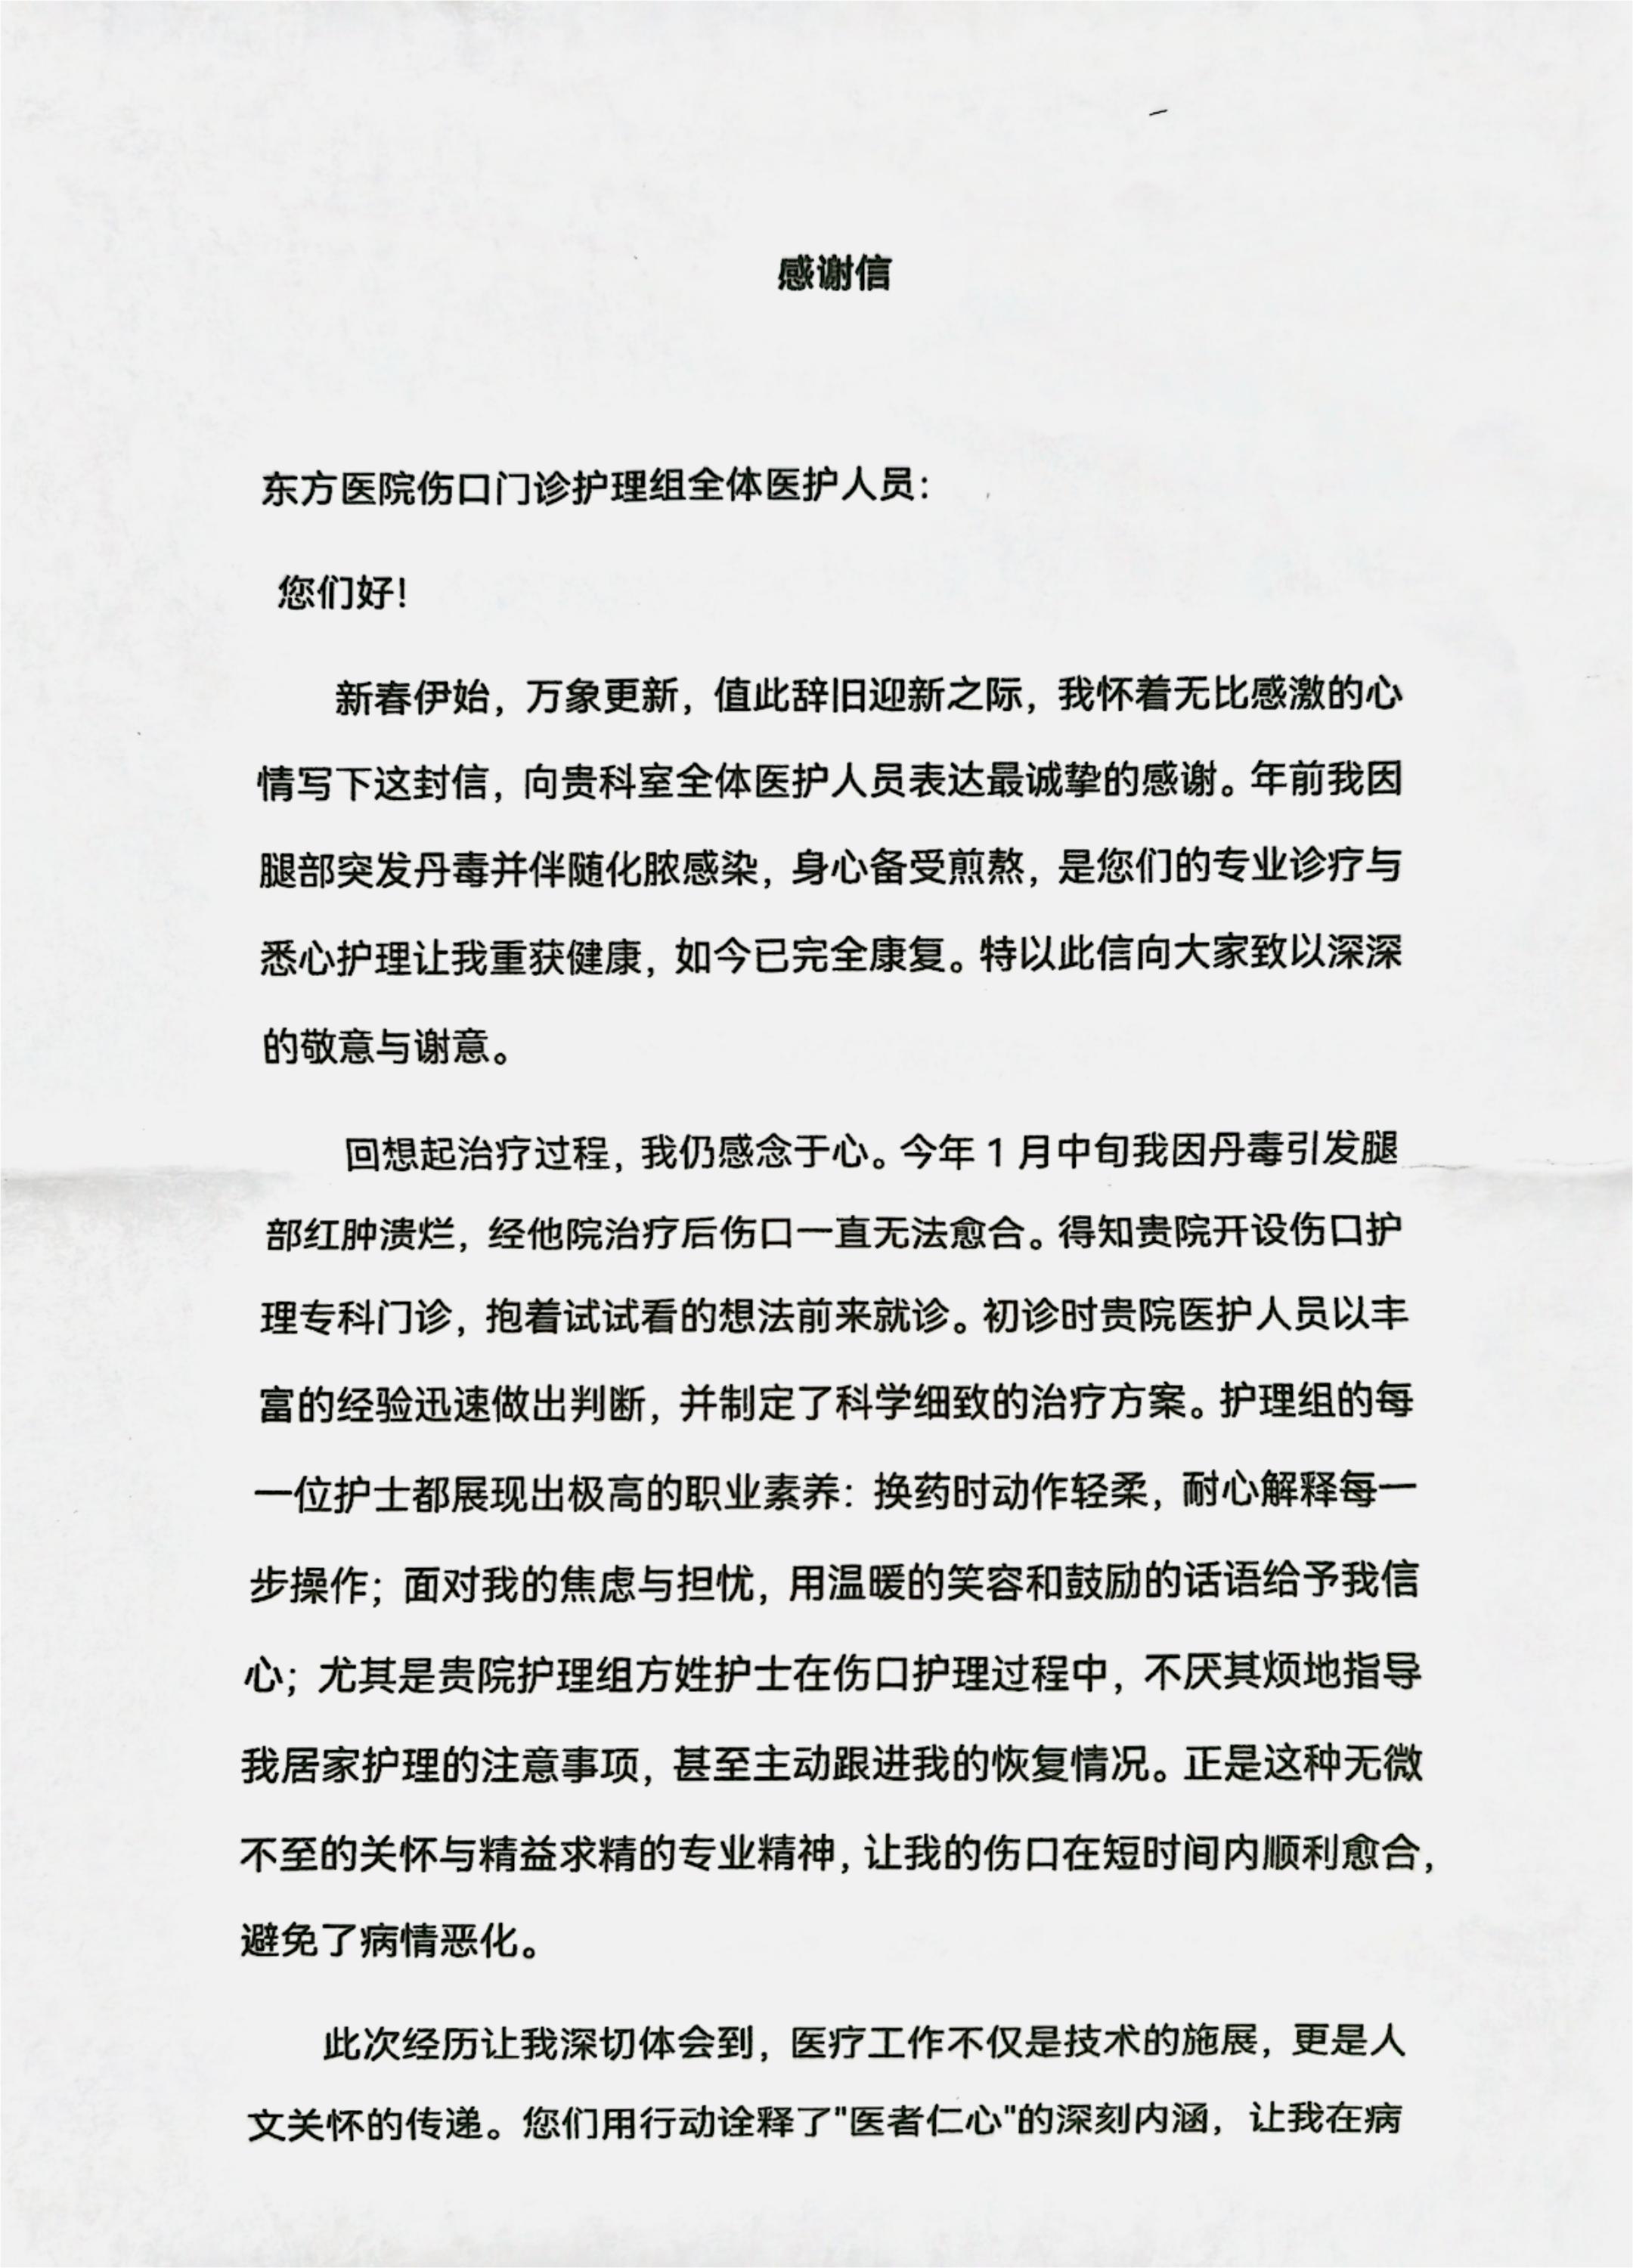 感谢信
东方医院伤口门诊护理组全体医护人员：
您们好！
新春伊始，万象更新，值此辞旧迎新之际，我怀着无比感激的心
情写下这封信，向贵科室全体医护人员表达最诚挚的感谢。年前我因
腿部突发丹毒并伴随化脓感染，身心备受煎熬，是您们的专业诊疗与
悉心护理让我重获健康，如今已完全康复。特以此信向大家致以深深
的敬意与谢意。
回想起治疗过程，我仍感念于心。今年 1 月中旬我因丹毒引发腿
部红肿溃烂，经他院治疗后伤口一直无法愈合。得知贵院开设伤口护
理专科门诊，抱着试试看的想法前来就诊。初诊时贵院医护人员以丰
富的经验迅速做出判断，并制定了科学细致的治疗方案。护理组的每
一位护士都展现出极高的职业素养：换药时动作轻柔，耐心解释每一
步操作；面对我的焦虑与担忧，用温暖的笑容和鼓励的话语给予我信
心；尤其是贵院护理组方姓护士在伤口护理过程中，不厌其烦地指导
我居家护理的注意事项，甚至主动跟进我的恢复情况。正是这种无微
不至的关怀与精益求精的专业精神，让我的伤口在短时间内顺利愈合，
避免了病情恶化。
此次经历让我深切体会到，医疗工作不仅是技术的施展，更是人
文关怀的传递。您们用行动诠释了"医者仁心"的深刻内涵，让我在病